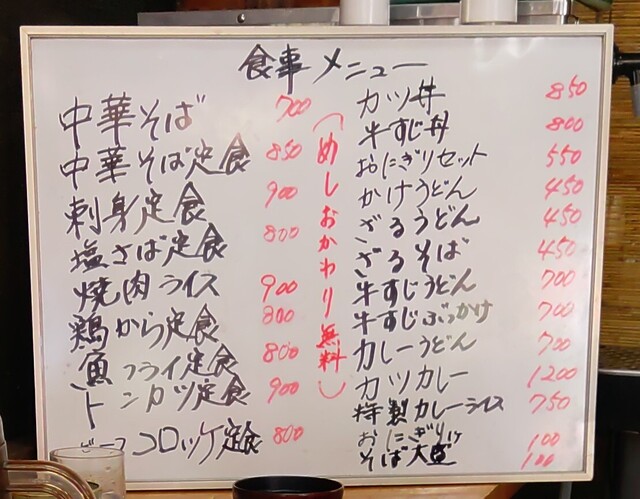 食事メニュー
中華そば 700
中華そば定食 850
刺身定食 900
塩さば定食 800
焼肉ライス 900
鶏から定食 800
魚フライ定食 800
トンカツ定食 900
ビーフコロッケ定食 800
(めしおかわり無料)
カツ丼 850
牛すじ丼 800
おにぎりセット 550
かけうどん 450
ざるうどん 450
ざるそば 450
牛すじうどん 700
牛すじぶっかけ 700
カレーうどん 700
カツカレー 1200
特製カレーライス 750
おにぎり1ケ 100
そば大盛 100